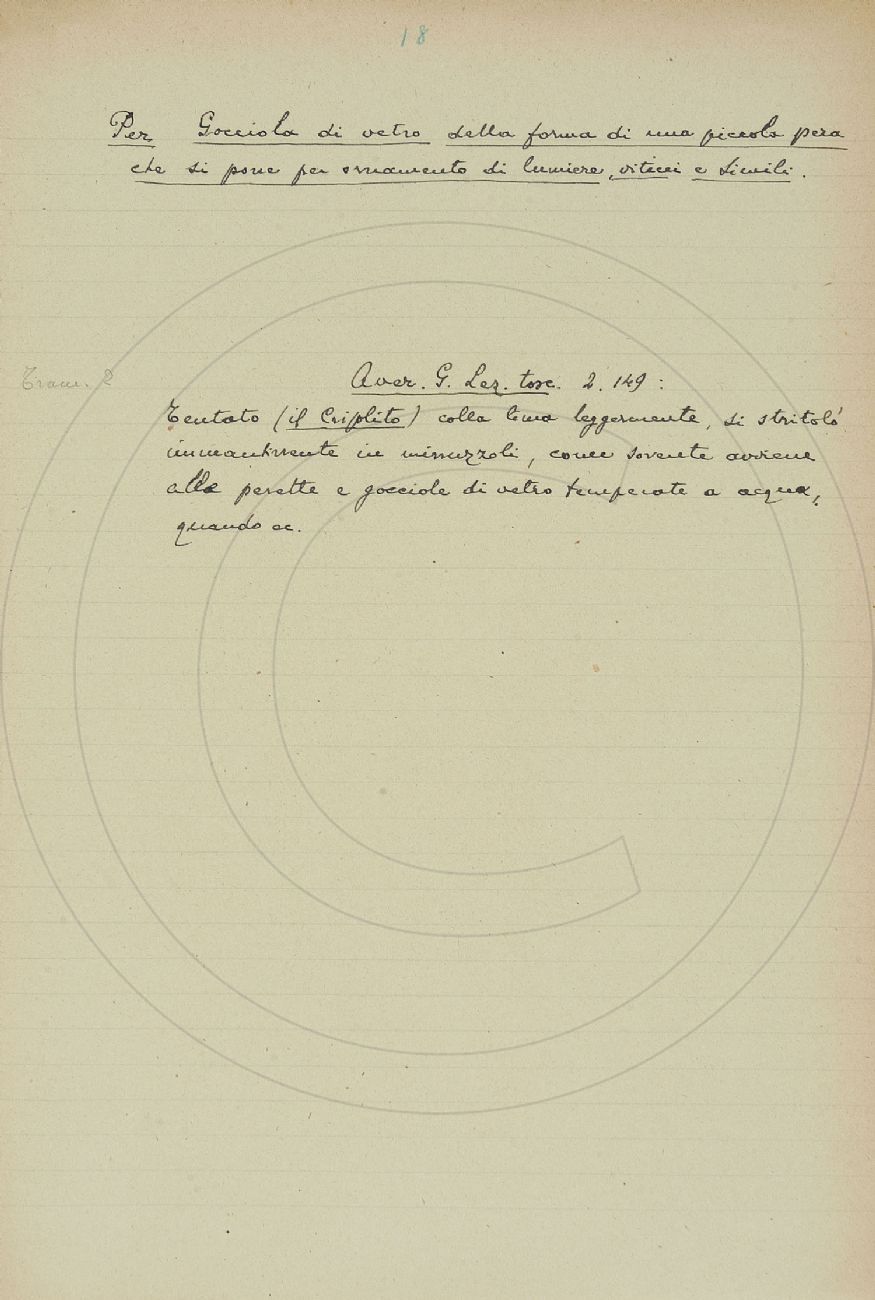 18
Per Gocciola di vetro della forma di una piccola pera
che si pone per ornamento di lumiere, viticci e simili.
Tram. 2
Aver. G. Lez. tosc. 2. 149 :
Tentato (il Crisolito) colla lima leggermente, si stritolò
immantinente in minuzzoli, come sovente avviene
alle perette e gocciole di vetro temperate a acqua,
quando ec.